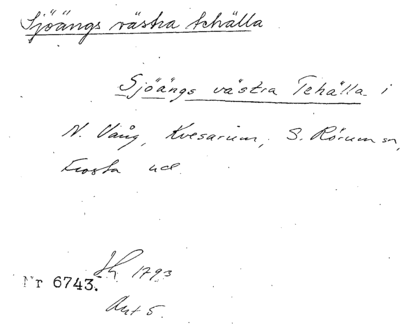 Sjöängs västra tehälla
Sjöängs västra Tehälla i
N. Vång, Kvesarum, S. Rörum sn,
Frosta hd
Sk 1793
Nr 6743.
Akt 5.